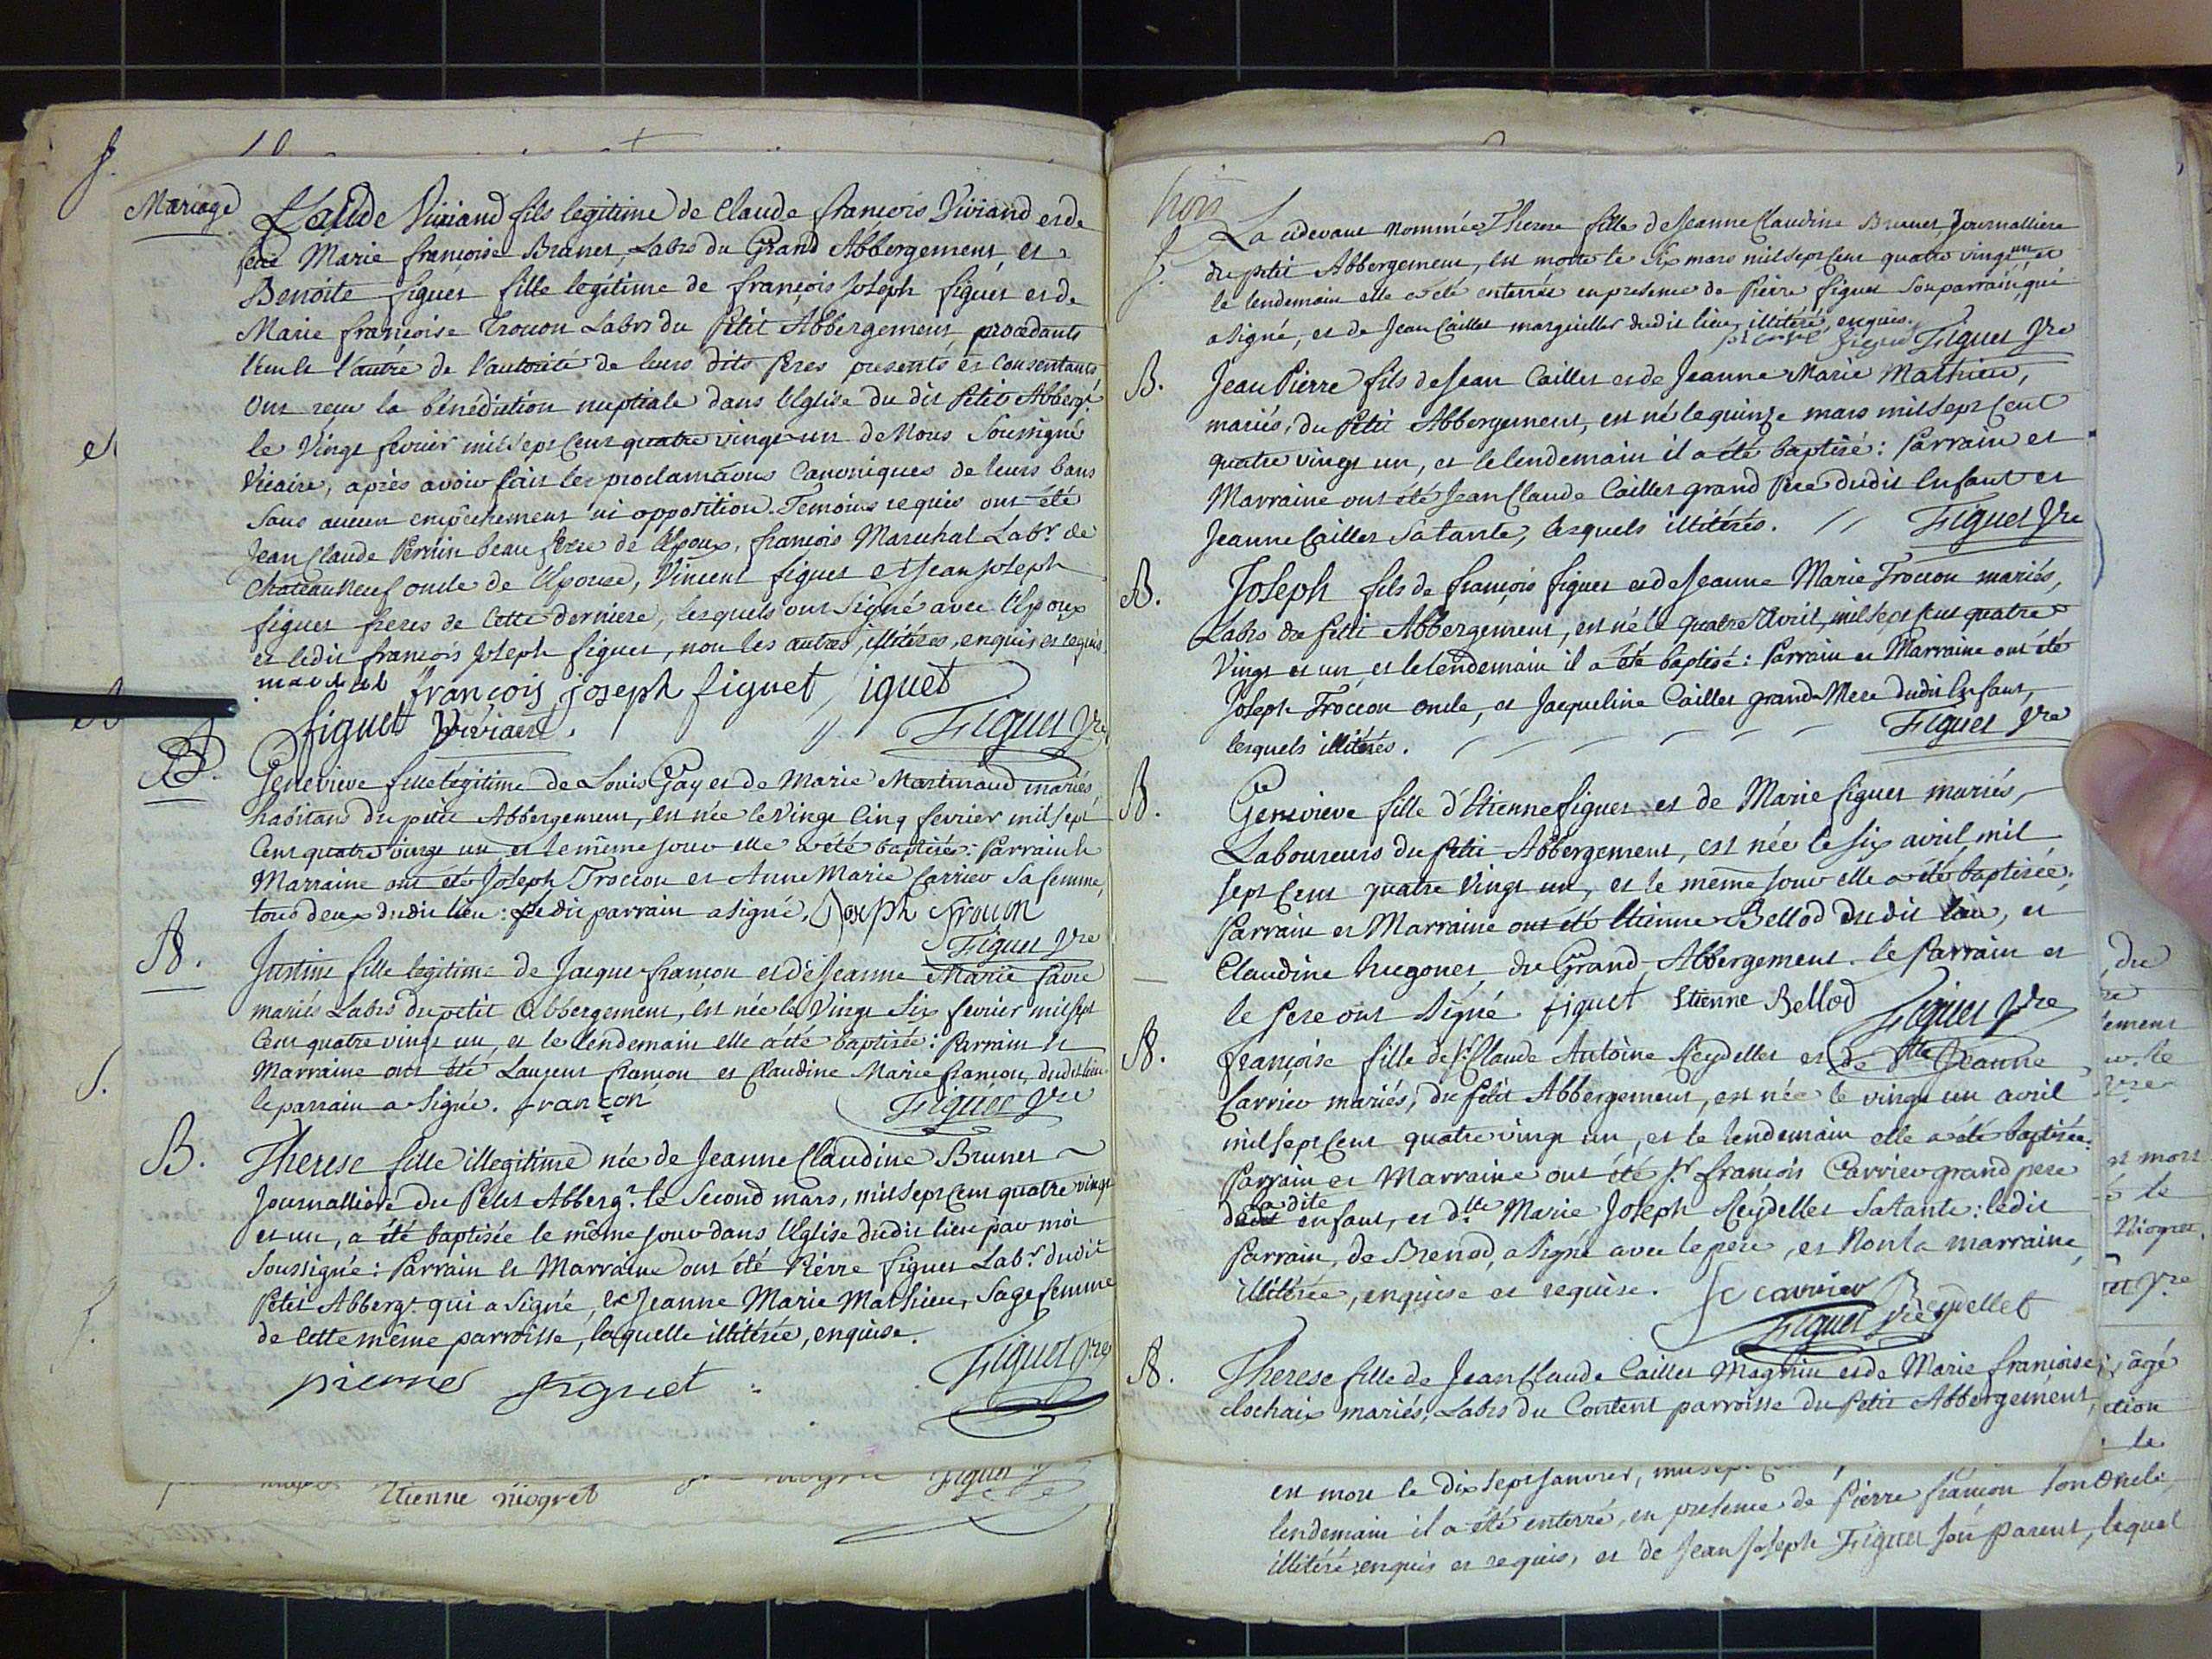 Mariage
Claude Viviand fils legitime de Claude francois Viviand et de
feue Marie francoise Brunet, Labrs du Grand Abbergement, et
Benoite figuet fille legitime de françois Joseph figuet et de
Marie françoise Trocon Labrs du Petit Abbergement, procedants
l'un et l'autre de l'autorité de leurs dits Peres presents et Consentants
Ont reçu la bénédiction nuptiale dans l'Eglise du dit Petit Abbergt.
le Vingt fevrier mil sept Cent quatre vingt un de Nous Soussigné
Vicaire, après avoir fait les proclamaons Canoniques de leurs bans
Sans aucun empêchement ni opposition. Temoins requis ont été
Jean Claude Perrin beau frere de l'Epoux, françois Marechal Labr. de
Chateauneuf oncle de l'Epouse, Vincent figuet et Jean Joseph
figuet freres de Cette derniere, lesquels ont Signé avec l'Epoux
et ledit francois Joseph figuet, non les autres, illitérés, enquis et requis
françois joseph figuet iguet
figuet Viviand. // Figuet Vre
B.
Genevieve fille légitime de Louis Gay et de Marie Martinaud mariés,
habitans du petit Abbergement, est née le Vingt Cinq fevrier mil sept
Cent quatre vingt un et le même jour elle a été baptisée: Parrain et
Marraine ont été Joseph Trocon et Anne Marie Carrier Sa femme,
tous deux dudit lieu: ledit parrain a signé. Joseph Trocon
Figuet Vre
B.
Justine fille legitime de Jacque françon et de Jeanne Marie favre
mariés Labrs du petit Abbergement, est née le Vingt Six fevrier mil sept
Cent quatre vingt un, et le lendemain elle a été baptisée: Parrain et
Marraine ont été Laurent françon et Claudine Marie françon, dudit lieu
le parrain a Signé. françon Figuet Vre
B.
Therese fille illegitime née de Jeanne Claudine Brunet
Journalliere du Petit Abbergt. le Second mars, mil sept Cent quatre vingt
et un, a été baptisée le même jour dans l'Eglise dudit lieu par moi
Soussigné: Parrain et Marraine ont été Pierre figuet Labr. dudit
Petit Abbergt. qui a signé, et Jeanne Marie Mathieu, Sage femme
de cette même parroisse, laquelle illitérée, enquise.
pierre figuet Figuet Vre
Etienne niogret
trois
La cidevant Nommée Therese fille de Jeanne Claudine Brunet, Journalliere
du petit Abbergement, est morte le Six mars mil sept Cent quatre vingt un et
le lendemain elle a été enterrée en presence de Pierre figuet Son parrain, qui
a signé, et de Jean Caillet margueiller dudit lieu, illitéré, enquis.
pierre figuet Figuet Vre
B.
Jean Pierre fils de Jean Caillet et de Jeanne Marie Mathieu,
mariés, du Petit Abbergement, est né le quinze mars mil sept Cent
quatre vingt un, et le lendemain il a été baptisé: Parrain et
Marraine ont été Jean Claude Caillet grand Pere dudit Enfant et
Jeanne Caillet Sa tante, lesquels illitérés. // Figuet Vre
B.
Joseph fils de françois figuet et de Jeanne Marie Trocon mariés,
Labrs du Petit Abbergement, est né le quatre Avril, mil sept Cent quatre
Vingt et un et le lendemain il a été baptisé: Parrain et Marraine ont été
Joseph Trocon Oncle, et Jacqueline Caillet grand-Mere dudit Enfant,
lesquels illitérés. Figuet Vre
B.
Genevieve fille d'Etienne figuet et de Marie figuet mariés,
Laboureurs du Petit Abbergement, est née le six avril mil
sept Cent quatre Vingt un, et le même jour elle a été baptisée:
Parrain et Marraine ont été Etienne Bellod dudit lieu, et
Claudine hugonet du Grand Abbergement. le Parrain et
le Pere ont Signé figuet Etienne Bellod Figuet Vre
B.
françoise fille de Sr. Claude Antoine Reydellet et de dlle Jeanne
Carrier mariés, du Petit Abbergement, est née le vingt un avril
mil sept Cent quatre vingt un, et le lendemain elle a été baptisée:
Parrain et Marraine ont été Sr. françois Carrier grand pere
la dite
dudit enfant, et dlle Marie Joseph Reydellet Sa tante: ledit
Parrain, de Brenod, a signé avec le pere, et Non la marraine,
illitérée, enquise et requise. carrier Reydellet
Figuet Vre
B.
Therese fille de Jean Claude Caillet Magnin et de Marie françoise
Clochaix mariés, Labrs du Content parroisse du Petit Abbergement,
est mort le dix sept Janvier,
lendemain il a été enterré, en presence de Pierre françon son Oncle
illitéré enquis et requis, et de Jean Joseph Figuet son parent, lequel